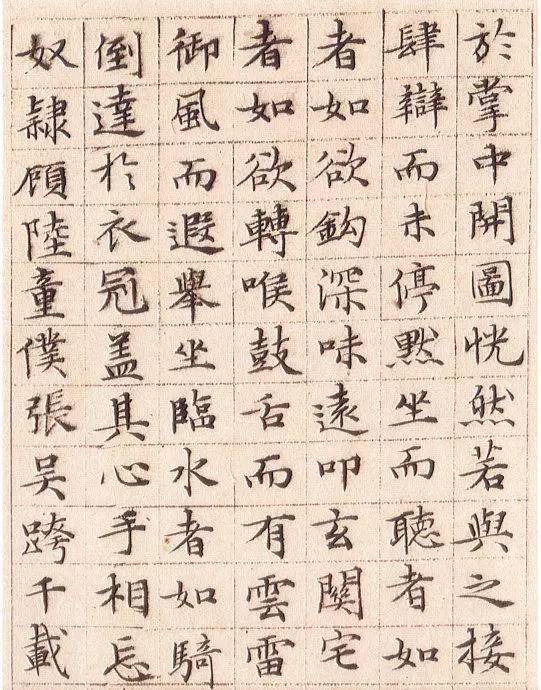 於掌中開圖恍然若與之接
肆辯而未停默坐而聽者如
者如欲鈎深味遠叩玄關宅
者如欲轉喉鼓舌而有雲雷
御風而遐舉坐臨水者如騎
倒達於衣冠盖其心手相忘
奴隸顧陸童僕張吴跨千載